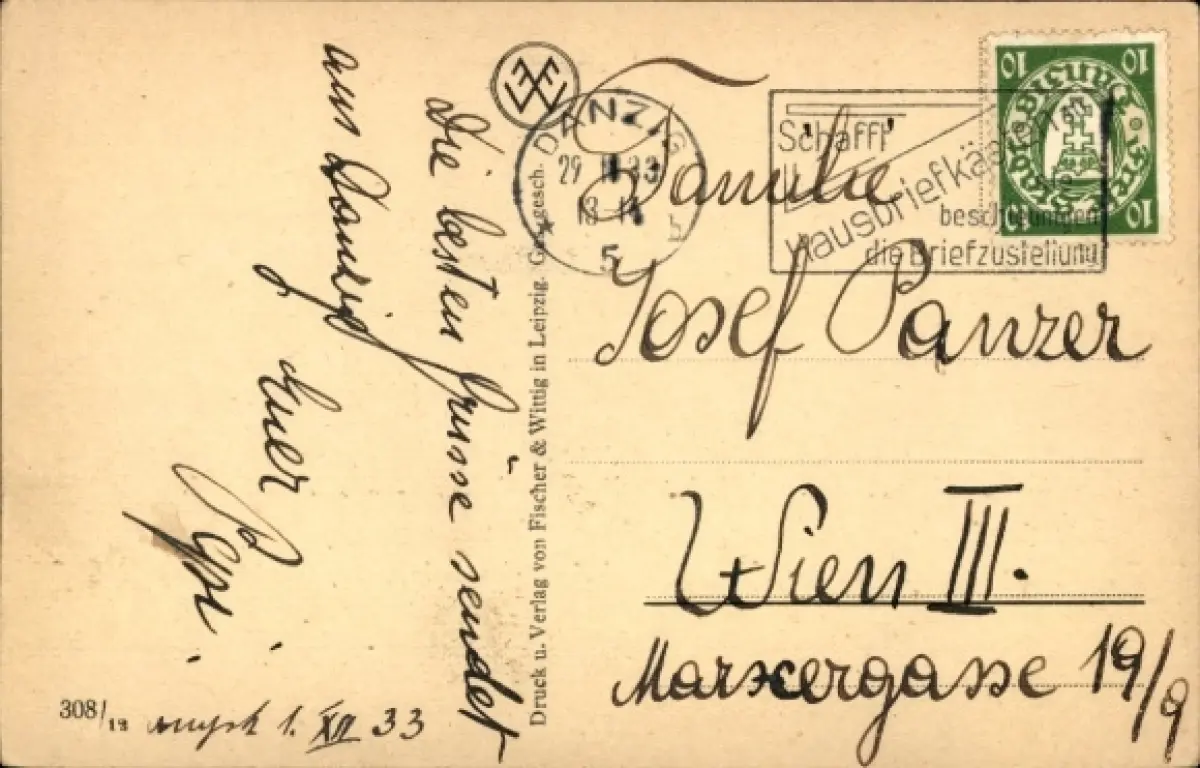 Die besten Grüsse sendet
aus Danzig
Euer
Pepi.
308/18
1. XII 33
Druck u. Verlag von Fischer & Wittig in Leipzig. Ges. gesch.
DANZIG
29 11 33
5
b
Schafft
Hausbriefkästen
beschleunigen
die Briefzustellung
10 10
Freie Stadt Danzig
10 10
Familie
Josef Panzer
Wien III.
Marxergasse 19/9